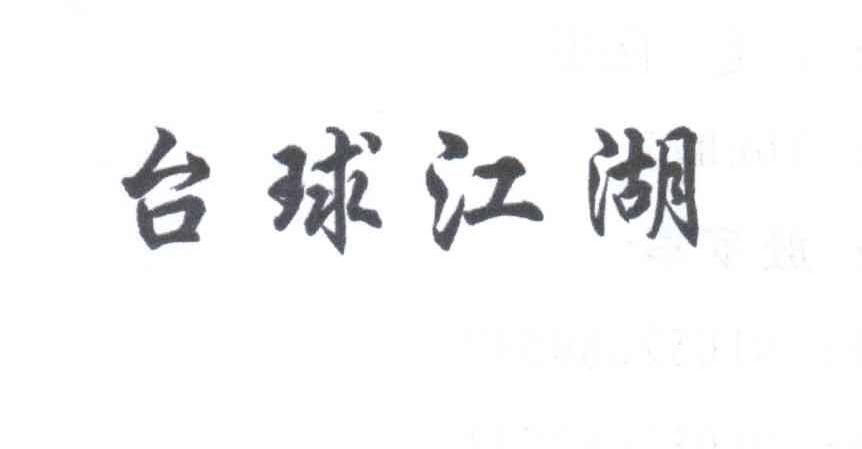 台球江湖